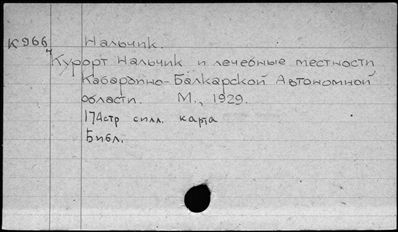 К 966 Нальчик.
Курорт Нальчик и лечебные местности
Кабардино-Балкарской Автономной
области. М., 1929.
174стр силл. карта
Библ.